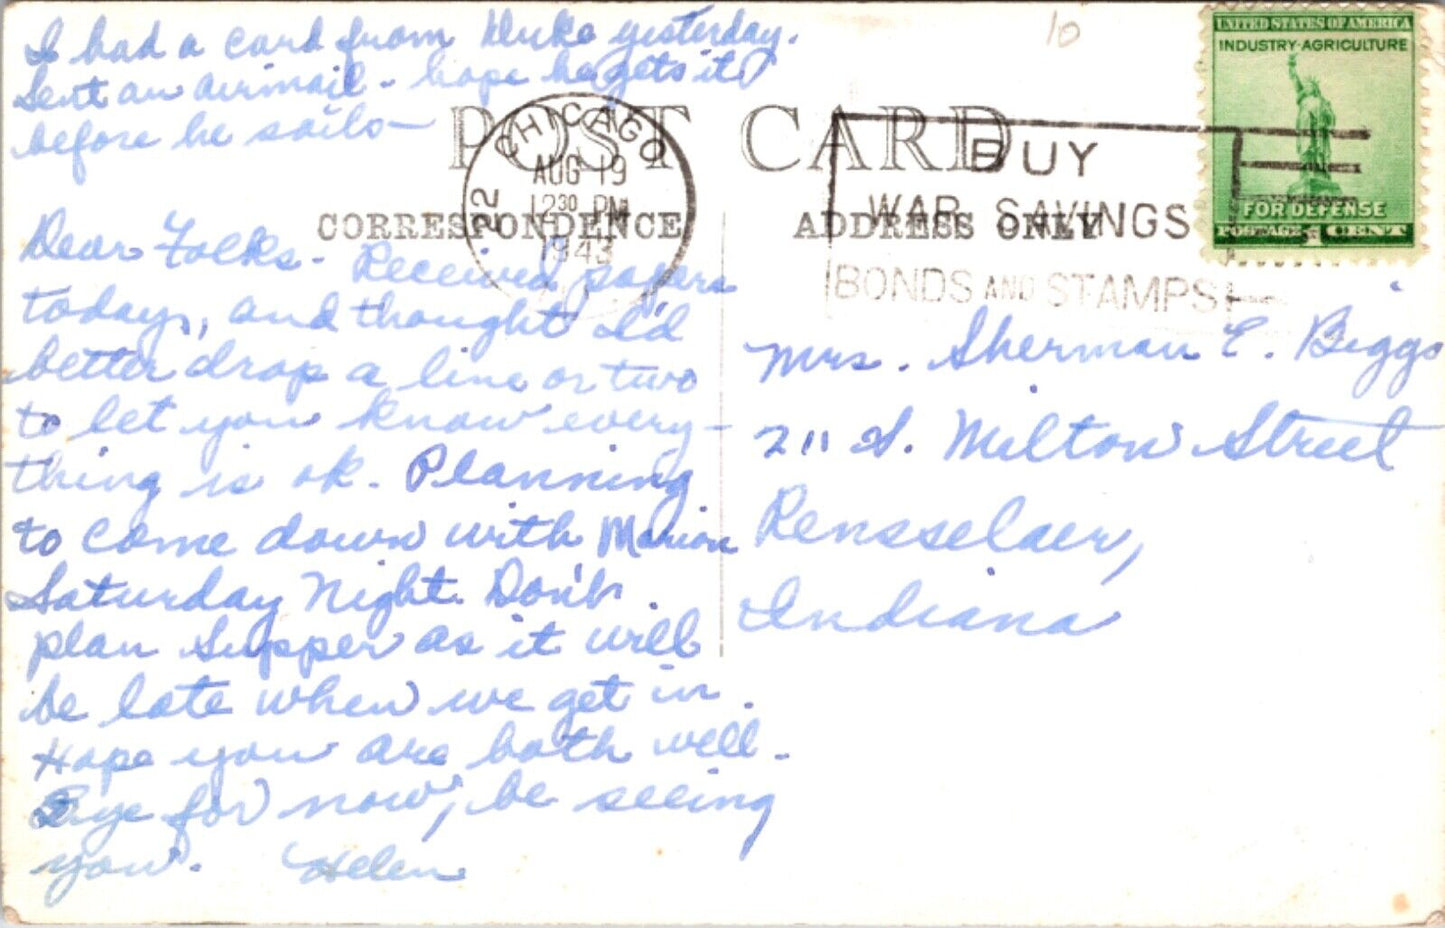 I had a card from Duke yesterday.
Sent an airmail - hope he gets it
before he sails -
10
UNITED STATES OF AMERICA
INDUSTRY·AGRICULTURE
FOR DEFENSE
POSTAGE 1 CENT
POST CARD
CHICAGO
AUG 19
12 30 PM
1943
22
BUY
WAR SAVINGS
BONDS AND STAMPS
CORRESPONDENCE
ADDRESS ONLY
Dear Folks - Received papers
today, and thought I'd
better drop a line or two
to let you know every-
thing is ok. Planning
to come down with Marion
Saturday Night. Don't
plan supper as it will
be late when we get in.
Hope you are both well -
Bye for now, be seeing
you. Helen
Mrs. Sherman E. Biggs
211 S. Milton Street
Rensselaer,
Indiana